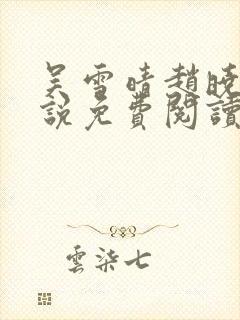 吴雪晴趙曉
說免費閱讀
雲柒七